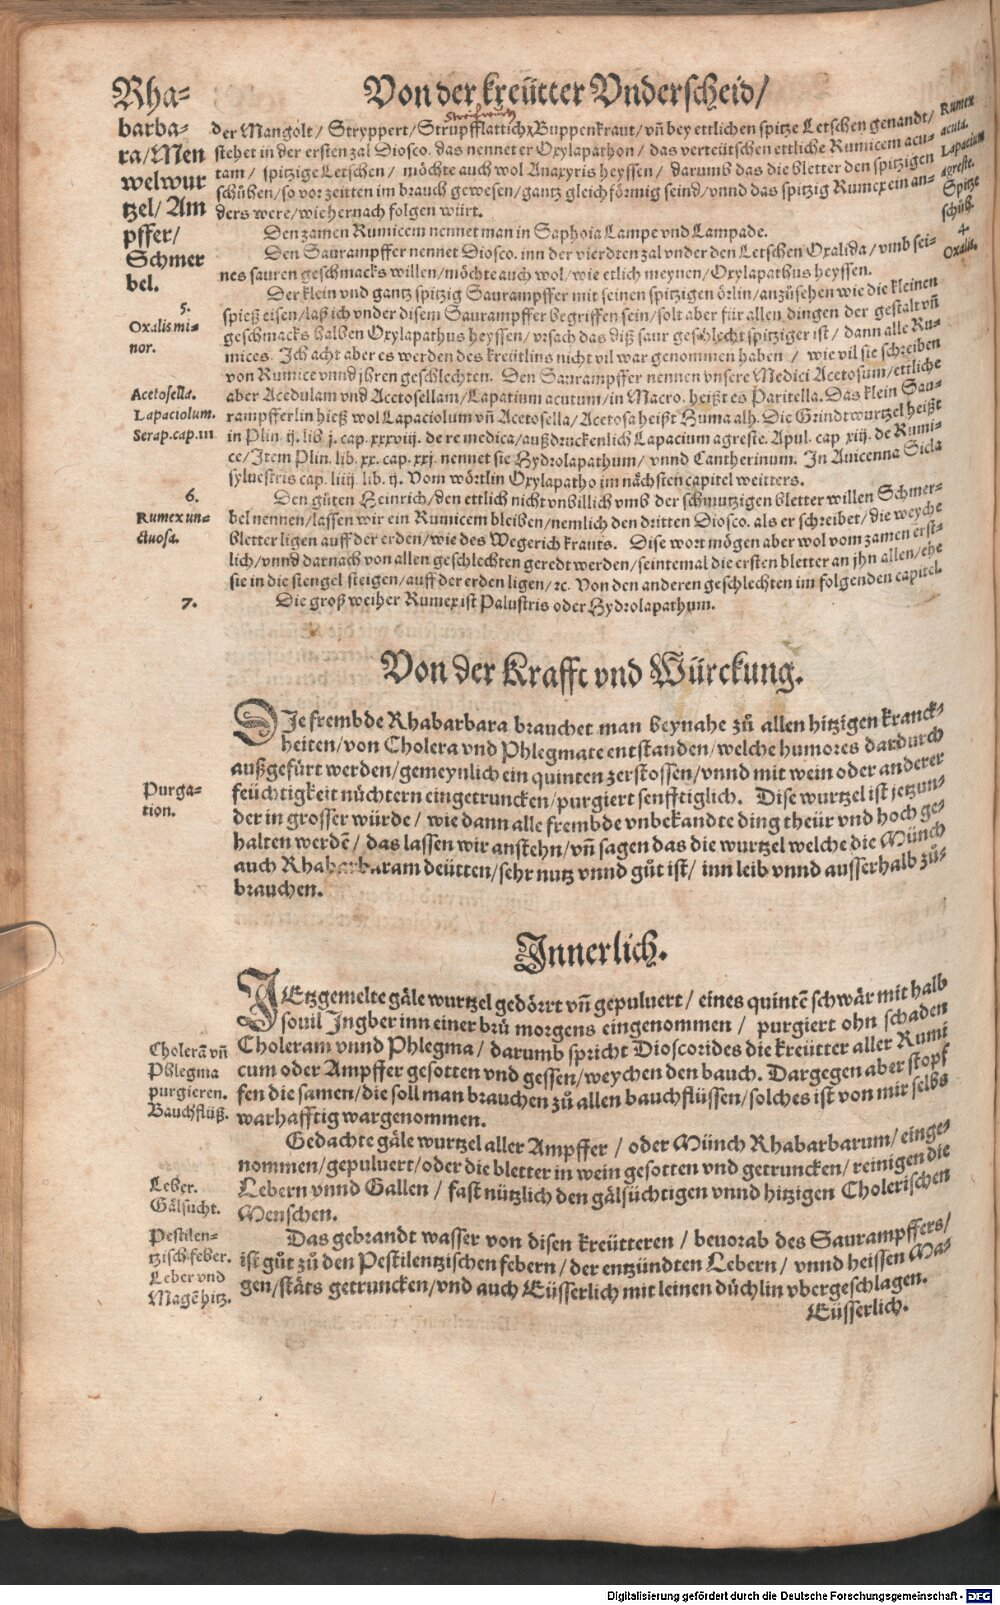 Rha-
barba-
ra/Men
welwur
tzel/ Am
pffer/
Schmer
bel.
Von der kreütter Vnderscheid/
der Mangolt/ Stryppert/ Strupfflattich/ Buppenkraut/ vn̄ bey ettlichen spitze Letschen genandt/
stehet in der ersten zal Diosco. das nennet er Oxylapathon/ das verteütschen ettliche Rumicem acu-
tam/ spitzige Letschen/ möchte auch wol Anaxyris heyssen/ darumb das die bletter den spitzigen
schůhen/ so vor zeitten im brauch gewesen/ gantz gleich förmig seind/ vnnd das spitzig Rumex ein an-
ders were/ wie hernach folgen würt.
Rumex
acuta.
Lapacium
agreste.
Spitze
schůh.
Den zamen Rumicem nennet man in Saphoia Lampe vnd Lampade.
Den Saurampffer nennet Diosco. inn der vierdten zal vnder den Letschen Oxalida/ vmb sei-
nes sauren geschmacks willen/ möchte auch wol/ wie etlich meynen/ Oxylapathus heyssen.
4.
Oxalis.
Der klein vnd gantz spitzig Saurampffer mit seinen spitzigen örlin/ anzůsehen wie die kleinen
spieß eisen/ laß ich vnder disem Saurampffer begriffen sein/ solt aber für allen dingen der gestalt vn̄
geschmacks halben Oxylapathus heyssen/ vrsach das diß saur geschlecht spitziger ist/ dann alle Ru-
mices. Ich acht aber es werden des kreütlins nicht vil war genommen haben/ wie vil sie schreiben
von Rumice vnnd jhren geschlechten. Den Saurampffer nennen vnsere Medici Acetosum/ ettliche
aber Acedulam vnd Acetosellam/ Lapatium acutum/ in Macro. heißt es Paritella. Das klein Sau-
rampfferlin hieß wol Lapaciolum vn̄ Acetosella/ Acetosa heißt Humaalh. Die Grindtwurtzel heißt
in Plin. ij. lib j. cap. xxxviij. de re medica/ außdruckenlich Lapacium agreste. Apul. cap xiij. de Rumi-
ce/ Item Plin. lib. xx. cap. xxj. nennet sie Hydrolapathum/ vnnd Cantherinum. In Auicenna Sicla
syluestris cap. liiij. lib. ij. Vom wörtlin Oxylapatho im nächsten capitel weitters.
5.
Oxalis mi-
nor.
Acetosella.
Lapaciolum.
Serap. cap. 111
Den gůten Heinrich/ den ettlich nicht vnbillich vmb der schmutzigen bletter willen Schmer-
bel nennen/ lassen wir ein Rumicem bleiben/ nemlich den dritten Diosco. als er schreibet/ die weyche
bletter ligen auff der erden/ wie des Wegerich krauts. Dise wort mögen aber wol vom zamen erst-
lich/ vnnd darnach von allen geschlechten geredt werden/ seintemal die ersten bletter an jhn allen/ ehe
sie in die stengel steigen/ auff der erden ligen/ ꝛc. Von den anderen geschlechten im folgenden capitel.
6.
Rumex un-
ctuosa.
7.
Die groß weiher Rumex ist Palustris oder Hydrolapathum.
Von der Krafft vnd Würckung.
DIe frembde Rhabarbara brauchet man beynahe zů allen hitzigen kranck-
heiten/ von Cholera vnd Phlegmate entstanden/ welche humores dardurch
außgefürt werden/ gemeynlich ein quinten zerstossen/ vnnd mit wein oder anderer
feüchtigkeit nüchtern eingetruncken/ purgiert senfftiglich. Dise wurtzel ist jetzun-
der in grosser würde/ wie dann alle frembde vnbekandte ding theür vnd hoch ge-
halten werdē/ das lassen wir anstehn/ vn̄ sagen das die wurtzel welche die Münch
auch Rhabarbaram deütten/ sehr nutz vnnd gůt ist/ inn leib vnnd ausserhalb zů-
brauchen.
Purga-
tion.
Innerlich.
IEtzgemelte gäle wurtzel gedörrt vn̄ gepuluert/ eines quintē schwär mit halb
souil Ingber inn einer brů morgens eingenommen/ purgiert ohn schaden
Choleram vnnd Phlegma/ darumb spricht Dioscorides die kreütter aller Rumi
cum oder Ampffer gesotten vnd gessen/ weychen den bauch. Dargegen aber stopf
fen die samen/ die soll man brauchen zů allen bauchflüssen/ solches ist von mir selbs
warhafftig wargenommen.
Cholerā vn̄
Phlegma
purgieren.
Bauchflüß.
Gedachte gäle wurtzel aller Ampffer/ oder Münch Rhabarbarum/ einge-
nommen/ gepuluert/ oder die bletter in wein gesotten vnd getruncken/ reinigen die
Lebern vnnd Gallen/ fast nützlich den gälsüchtigen vnnd hitzigen Cholerischen
Menschen.
Leber.
Gälsucht.
Das gebrandt wasser von disen kreütteren/ beuorab des Saurampffers/
ist gůt zů den Pestilentzischen febern/ der entzündten Lebern/ vnnd heissen Ma-
gen/ stäts getruncken/ vnd auch Eüsserlich mit leinen düchlin vbergeschlagen.
Pestilen-
tzisch feber.
Leber vnd
Magē hitz.
Eüsserlich.
Digitalisierung gefördert durch die Deutsche Forschungsgemeinschaft - DFG